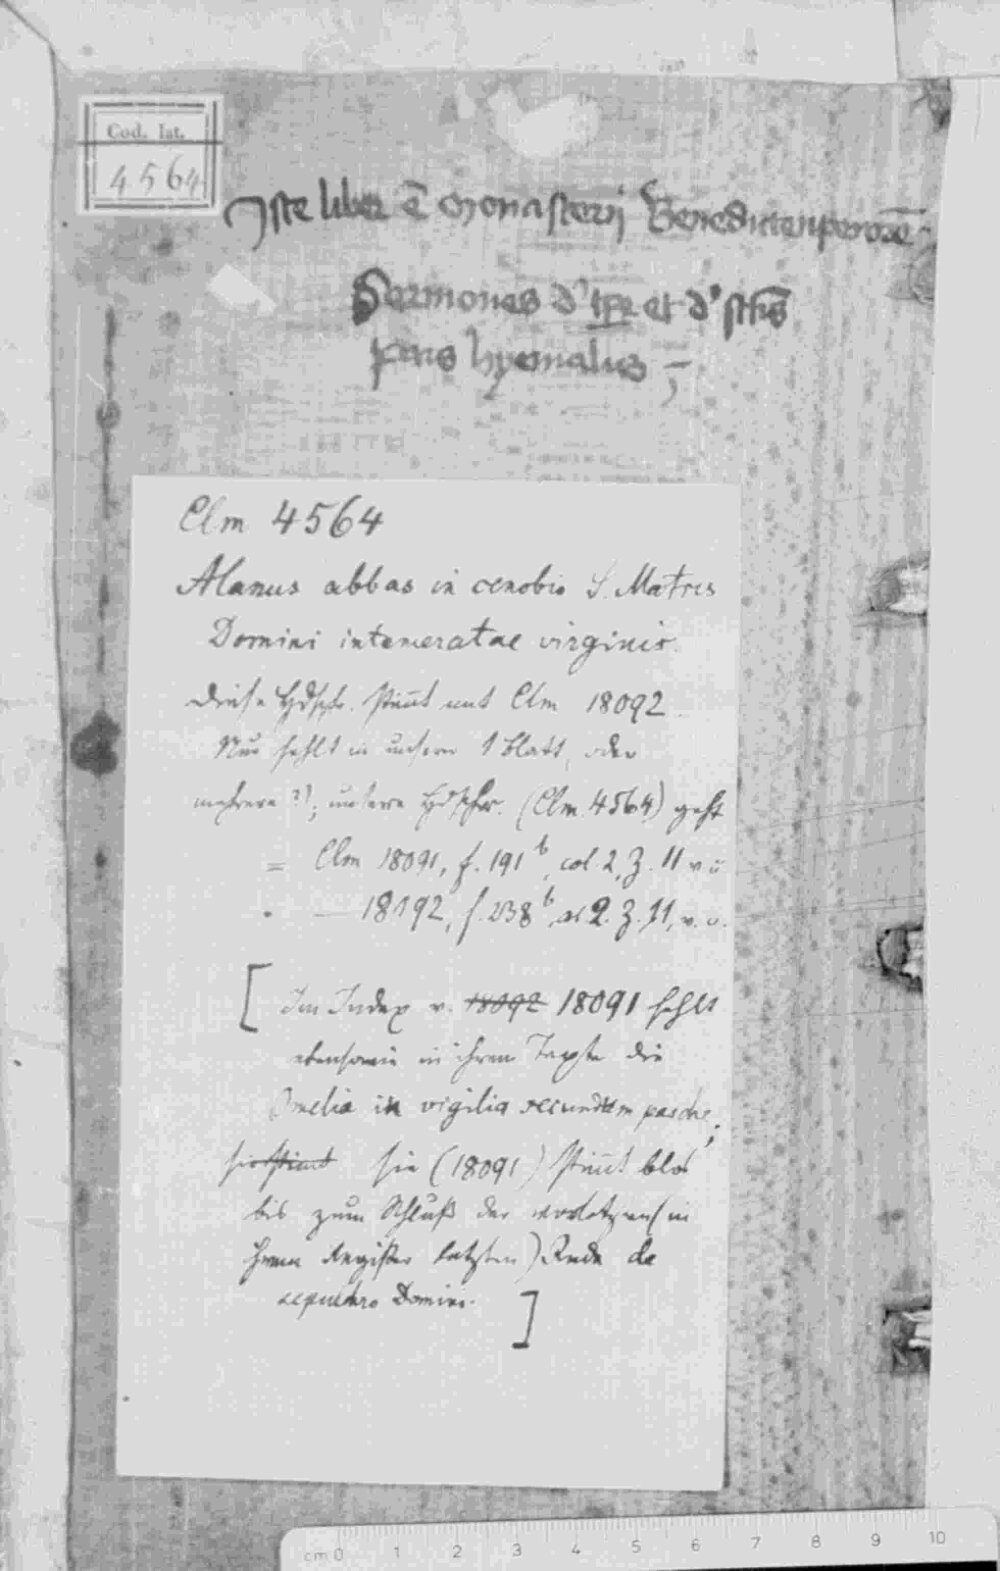 Cod. lat.
4564
Iste liber ē Monasterij Benedictenpewrē
Sermones d' tp̄e et d' sctīs
pars hyemalis
Clm 4564
Alanus abbas in cenobio S. Matris
Domini intemeratae virginis.
Diese Hdschr. stim̄t mit Clm 18092
Nur fehlt in unserer 1 Blatt, oder
mehrere ?); unsere Hdschr. (Clm 4564) geht
= Clm 18091, f. 191 b, col. 2, Z. 11 v. u
18192, f. 238 b, 2. Z. 11, v. u.
[ Im Index v. 18092 18091 fehlt
ebenso wie in ihrem Texte die
Omelia in vigilia secundum pasche;
sie stimt sie (18091) stim̄t blos
bis zum Schluß der vorletzten (in
ihrem Register letzten) Rede de
sepulchro Domini. ]
cm 0 1 2 3 4 5 6 7 8 9 10